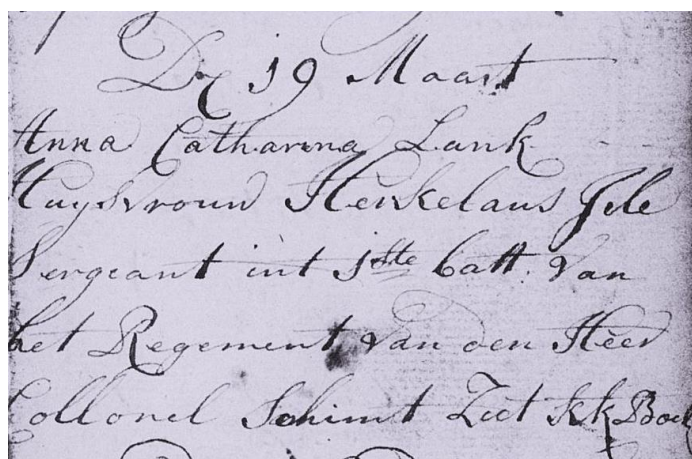 Dn 19 Maart
Anna Catharina Lank
Huysvrouw Henkelaus
Sergeant int 1ste batt. van
het Regement van den Heer
Collonel Schimt Ziet